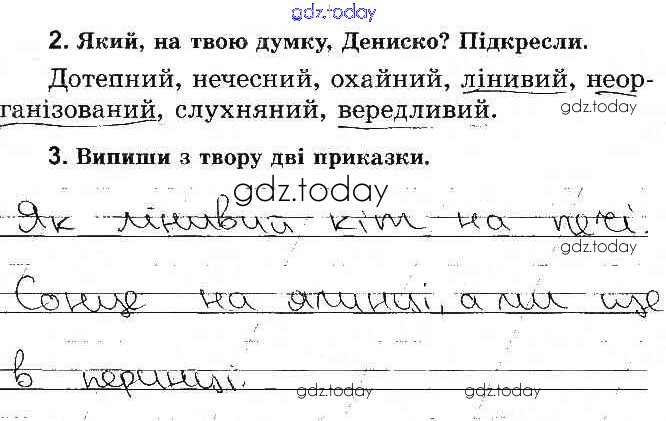 gdz.today
2. Який, на твою думку, Дениско? Підкресли.
Дотепний, нечесний, охайний, лінивий, неор-
gdz.today
ганізований, слухняний, вередливий.
3. Випиши з твору дві приказки.
gdz.today
Як лінивий кіт на печі.
gdz.today
Сонце на ялинці, а ми ще
в перинці.
gdz.today
gdz.today